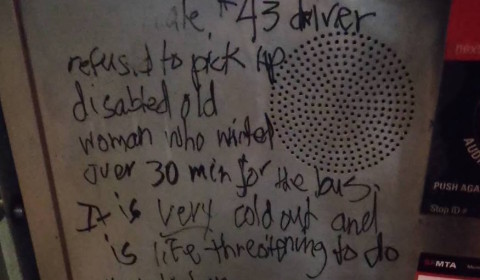 #43 driver
refused to pick up
disabled old
woman who waited
over 30 min for the bus.
It is very cold out and
is life threatening to do
next
AUD
PUSH AGA
Stop ID #
MTA